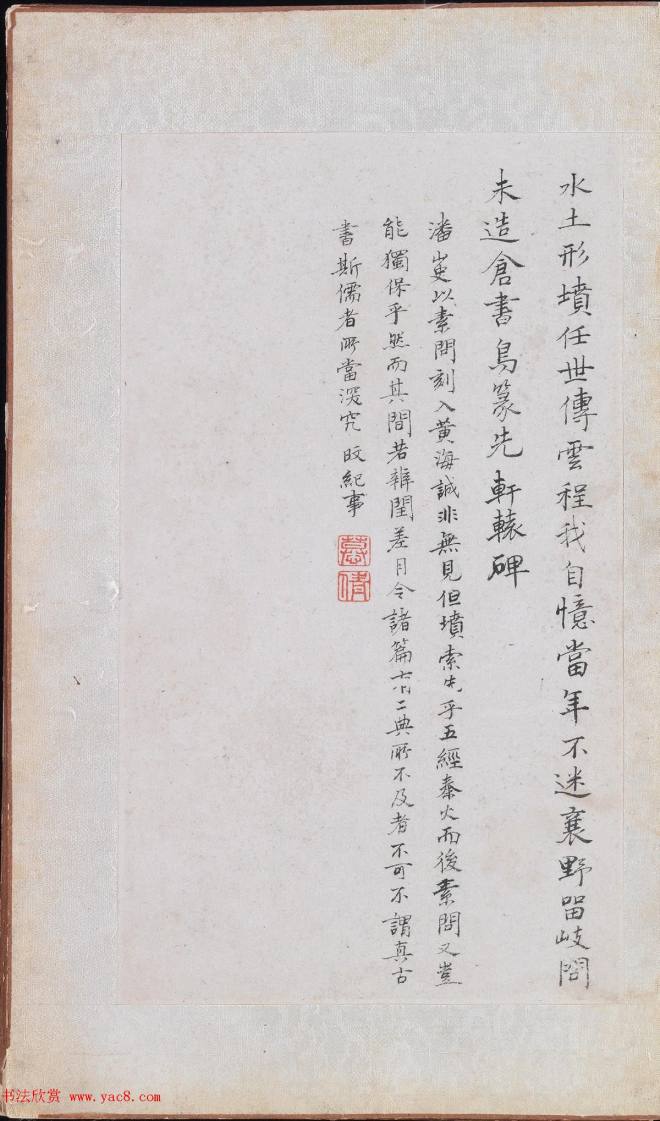 水土形墳任世傳雲程我自憶當年不迷襄野留岐問
未造倉書鳥篆先 軒轅碑
潘叟以素問刻入黃海誠非無見但墳索先乎五經秦火而後素問又豈
能獨保乎然而其間若辨閏差月令諸篇二典所不及者不可不謂真古
書斯儒者所當深究 旼紀事
慕倩
书法欣赏 www.yac8.com